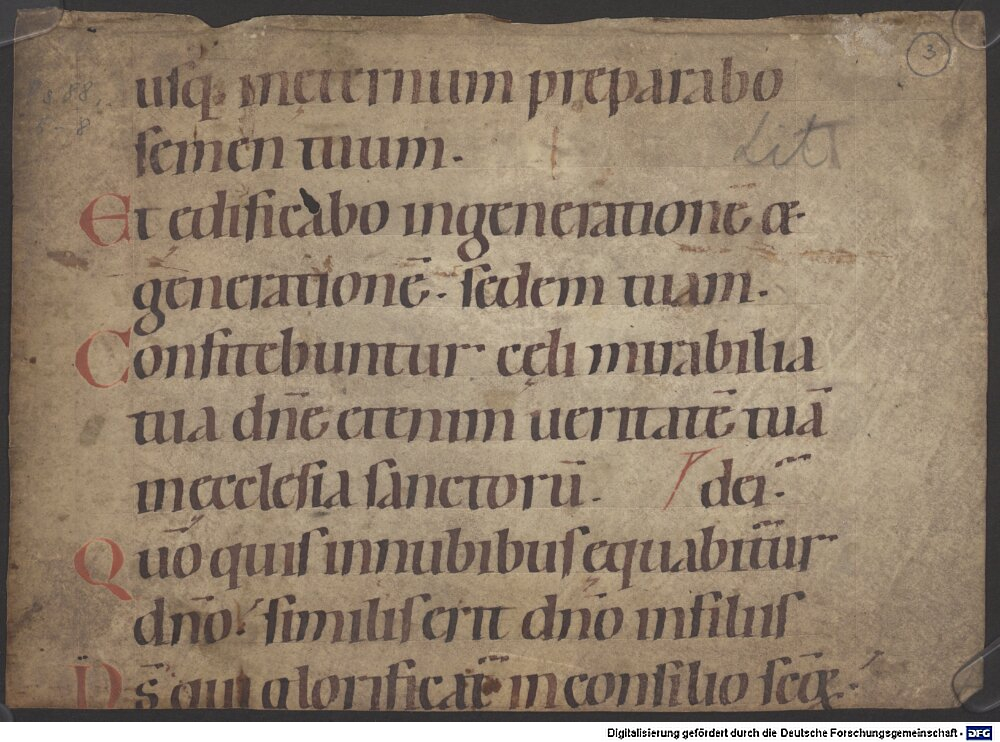 3
uſq; inęternum preparabo
ſemen tuum.
Lit
Et edificabo ingenerationē &
generationē. ſedem tuam.
Confitebuntur cęli mirabilia
tua dn̄e etenim ueritatē tuā
inęccleſia ſanctorū. dei.
Quō quiſ innubibuſ equabitur
dn̄o. ſimiliſ erit dn̄o infiliiſ
Ds̄ qui glorificat̄ inconſilio ſcōꝝ.
Digitalisierung gefördert durch die Deutsche Forschungsgemeinschaft - DFG